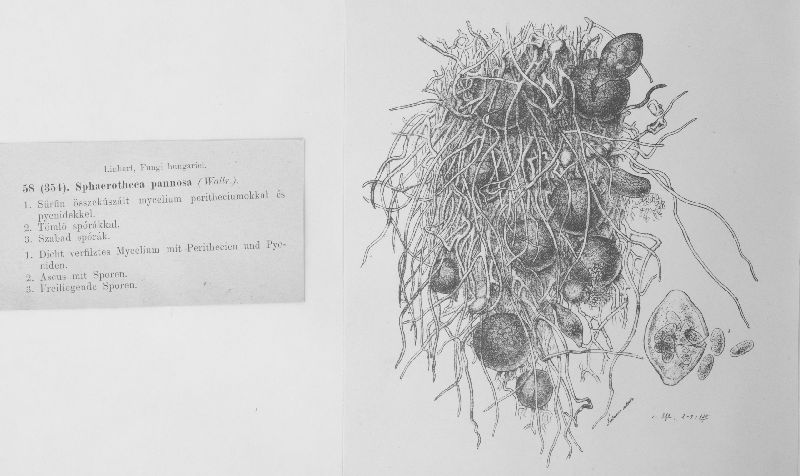 Linhart, Fungi hungarici.
58 (354). Sphaerotheca pannosa (Wallr.).
1. Sűrűn összekúszált mycelium peritheciumokkal és
pycnidekkel.
2. Tömlő spórákkal.
3. Szabad spórák.
1. Dicht verfilztes Mycelium mit Perithecien und Pyc-
niden.
2. Ascus mit Sporen.
3. Freiliegende Sporen.